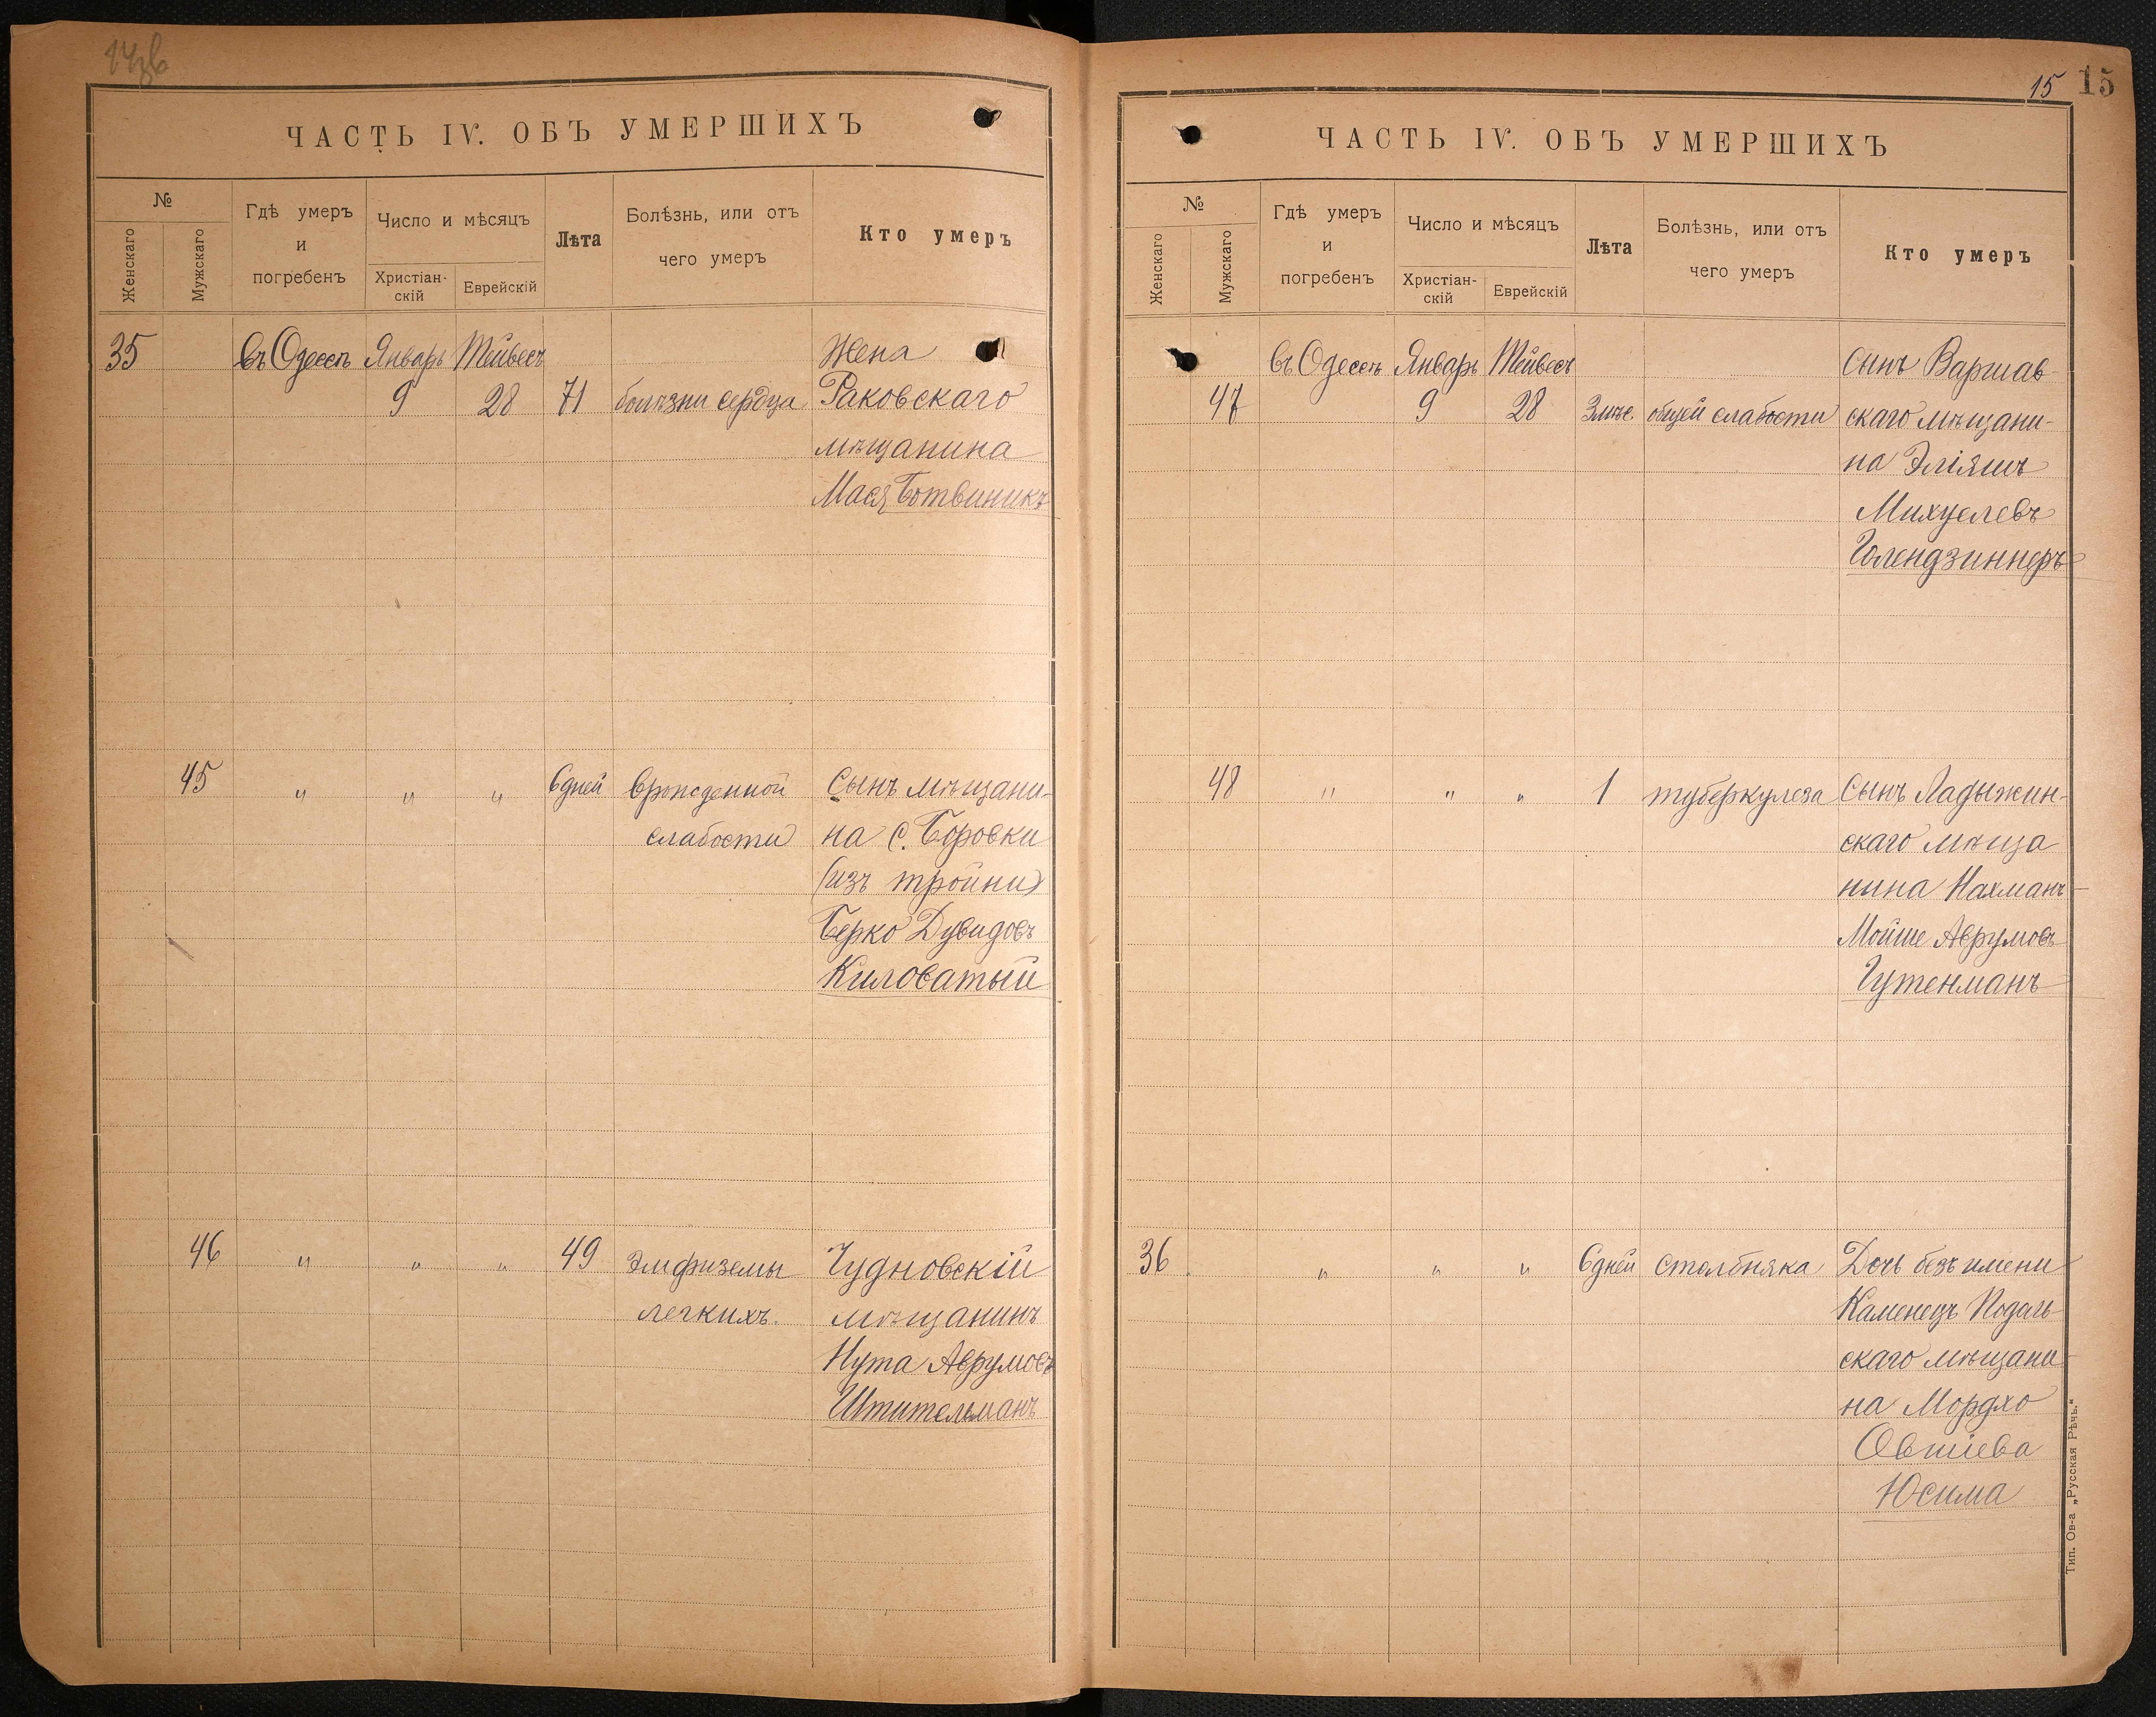 14 зв
ЧАСТЬ IV. ОБЪ УМЕРШИХЪ
№
Женскаго
Мужскаго
Гдѣ умеръ
и
погребенъ
Число и мѣсяцъ
Христіан-
скій
Еврейскій
Лѣта
Болѣзнь, или отъ
чего умеръ
Кто умеръ
35 въ Одессѣ Январь Тейвесъ Жена
9 28 71 болѣзни сердца Раковскаго
мѣщанина
Мася Ботвиникъ
45 " " " 6 дней врожденной Сынъ мѣщани-
слабости на с. Боровки
(изъ тройни)
Берко Дувидовъ
Киловатый
46 " " " 49 Эмфиземы Чудновскій
легкихъ. мѣщанинъ
Нута Аврумовъ
Штительманъ
15 15
ЧАСТЬ IV. ОБЪ УМЕРШИХЪ
№
Женскаго
Мужскаго
Гдѣ умеръ
и
погребенъ
Число и мѣсяцъ
Христіан-
скій
Еврейскій
Лѣта
Болѣзнь, или отъ
чего умеръ
Кто умеръ
въ Одессѣ Январь Тейвесъ сынъ Варшав-
47 9 28 3 мѣс. общей слабости скаго мѣщани-
на Эліяшъ
Михуелевъ
Голендзинеръ
48 " " " 1 туберкулеза Сынъ Ладыжин-
скаго мѣща
нина Нахманъ-
Мойше Аврумовъ
Гутенманъ
36 " " " 6 дней столбняка Дочь безъ имени
Каменецъ Подоль-
скаго мѣщани
на Мордхо
Овшіева
Юсима
Тип. Ов-а „Русская Рѣчь."